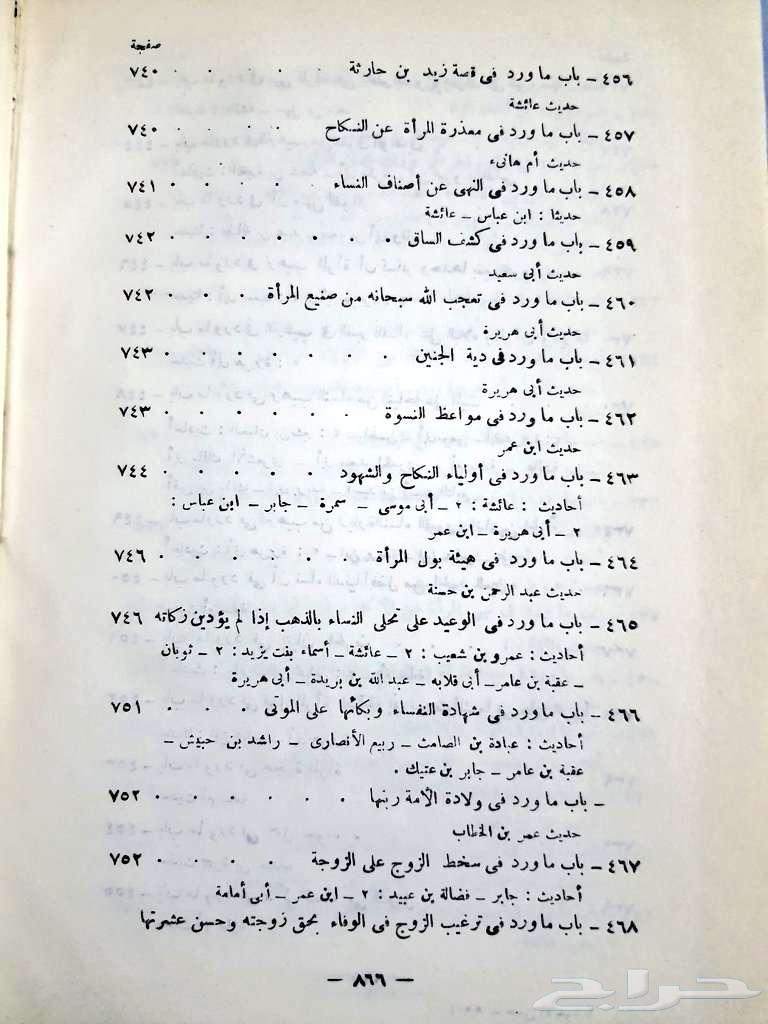 صفحة
٤٥٦ ـ باب ما ورد فى قصة زيد بن حارثة . . . . . ٧٤٠
حديث عائشة
٤٥٧ ـ باب ما ورد فى معذرة المرأة عن النكاح . . . . ٧٤٠
حديث أم هانىء
٤٥٨ ـ باب ما ورد فى النهى عن أصناف النساء . . . . ٧٤١
حديثا : ابن عباس ـ عائشة
٤٥٩ ـ باب ما ورد فى كشف الساق . . . . . . ٧٤٢
حديث أبى سعيد
٤٦٠ ـ باب ما ورد فى تعجب الله سبحانه من صنيع المرأة . . . ٧٤٢
حديث أبى هريرة
٤٦١ ـ باب ما ورد فى دية الجنين . . . . . . . ٧٤٣
حديث أبى هريرة
٤٦٢ ـ باب ما ورد فى مواعظ النسوة . . . . . . ٧٤٣
حديث ابن عمر
٤٦٣ ـ باب ما ورد فى أولياء النكاح والشهود . . . . . ٧٤٤
أحاديث : عائشة : ٢ ـ أبى موسى ـ سمرة ـ جابر ـ ابن عباس :
٢ ـ أبى هريرة ـ ابن عمر
٤٦٤ ـ باب ما ورد فى هيئة بول المرأة . . . . . ٧٤٦
حديث عبد الرحمن بن حسنة
٤٦٥ ـ باب ما ورد فى الوعيد على تحلى النساء بالذهب إذا لم يؤدين زكاته ٧٤٦
أحاديث : عمرو بن شعيب : ٢ ـ عائشة ـ أسماء بنت يزيد : ٢ ـ ثوبان
ـ عقبة بن عامر ـ أبى قلابه ـ عبد الله بن بريدة ـ أبى هريرة
٤٦٦ ـ باب ما ورد فى شهادة النفساء وبكائها على الموتى . . . ٧٥١
أحاديث : عبادة بن الصامت ـ ربيع الأنصارى ـ راشد بن حبيش ـ
عقبة بن عامر ـ جابر بن عتيك .
ـ باب ما ورد فى ولادة الأمة ربتها . . . . . . ٧٥٢
حديث عمر بن الخطاب
٤٦٧ ـ باب ما ورد فى سخط الزوج على الزوجة . . . . ٧٥٢
أحاديث : جابر ـ فضالة بن عبيد : ٢ ـ ابن عمر ـ أبى أمامة
٤٦٨ ـ باب ما ورد فى ترغيب الزوج فى الوفاء بحق زوجته وحسن عشرتها
ـ ٨٦٦ ـ
حراج